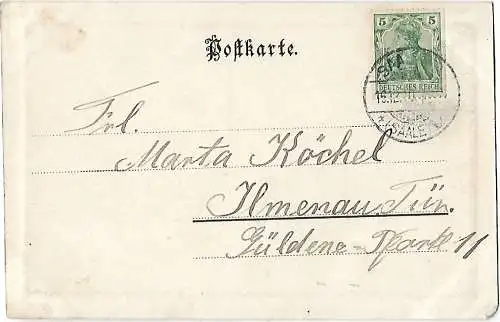 5 5
Postkarte.
DEUTSCHES REICH
SAALE
Frl.
Marta Köchel
Ilmenau Tür.
Güldene-Pfort 11